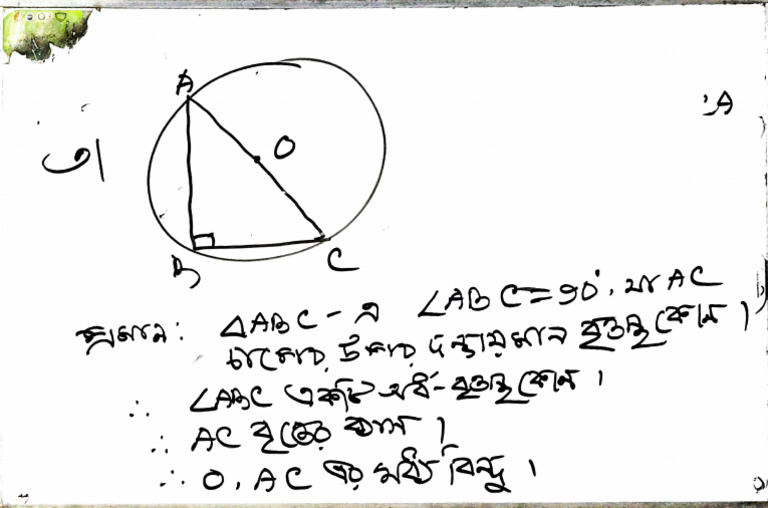 A
,A
৩।
O
B
C
প্রমাণ: △ABC-এ ∠ABC=90°, যা AC
চাপের উপর দন্ডায়মান বৃত্তস্থ কোণ।
∴ ∠ABC একটি অর্ধ-বৃত্তস্থ কোণ।
∴ AC বৃত্তের ব্যাস।
∴ O, AC এর মধ্য বিন্দু।